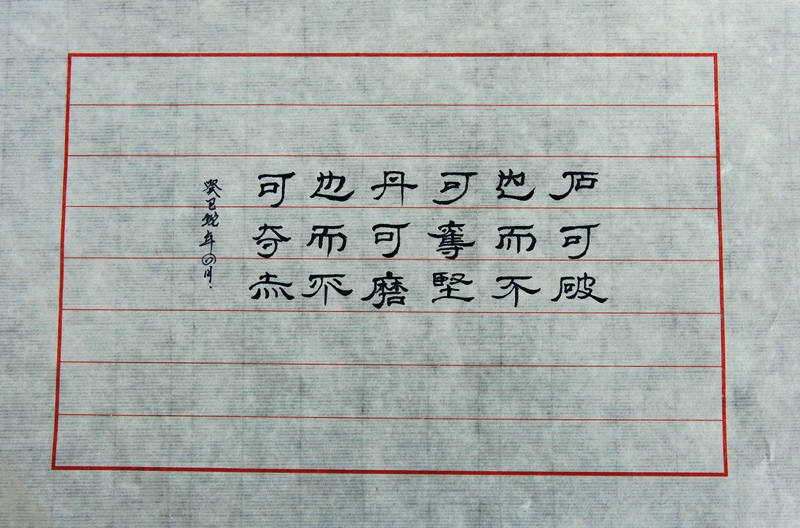 石可破
也而不
可奪堅
丹可磨
也而不
可夺赤
癸巳蛇年四月.